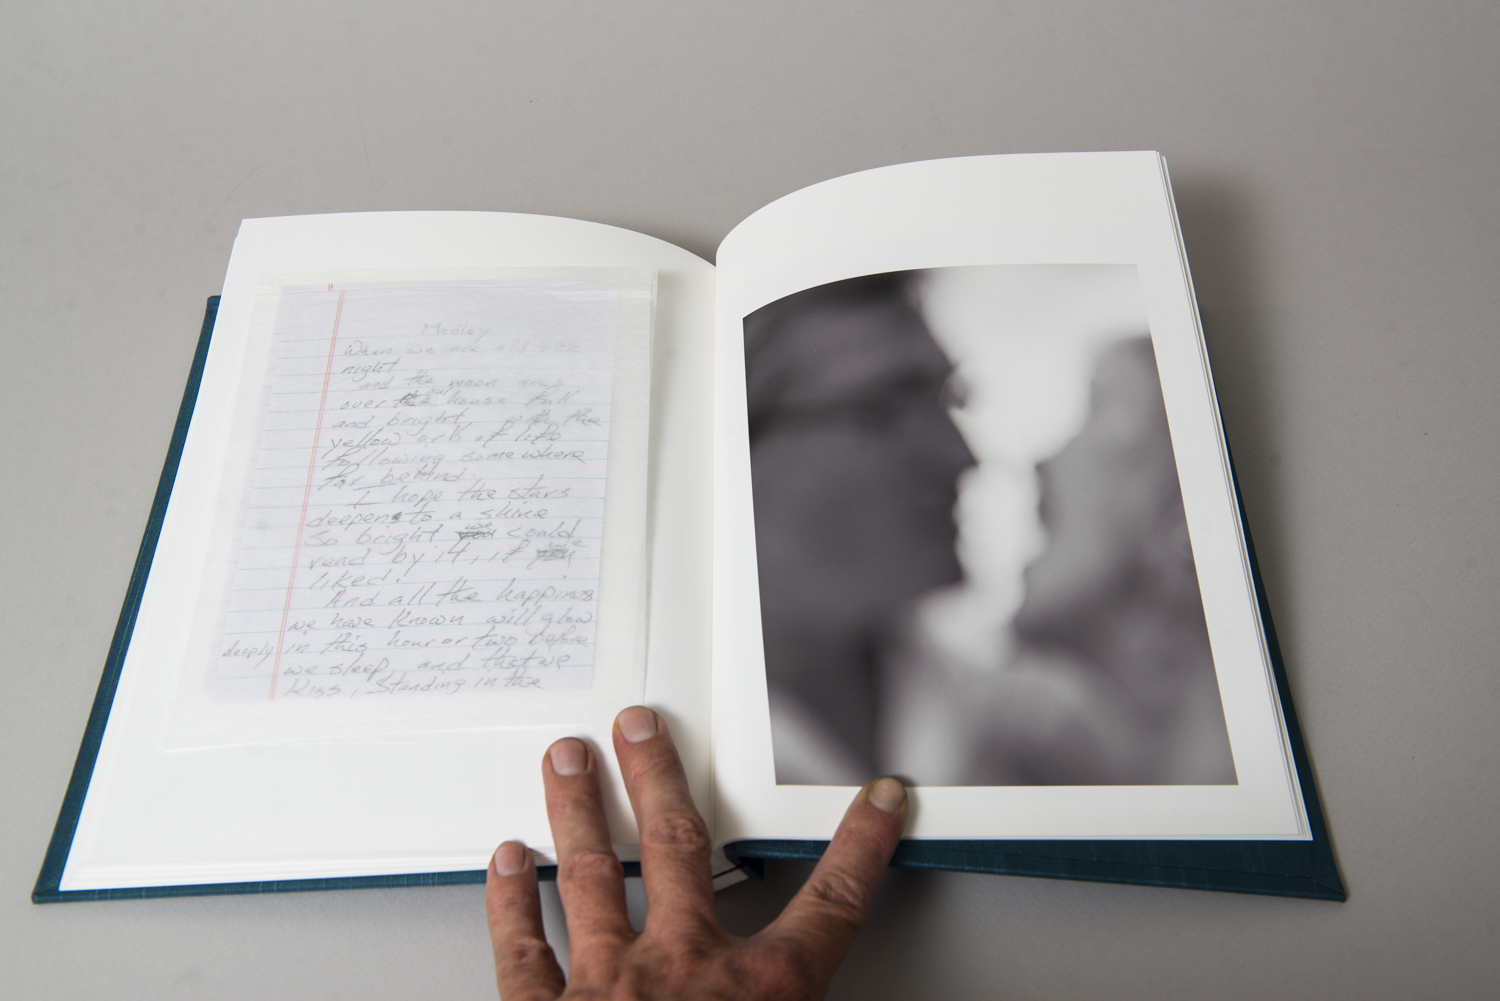 Medley
When we are old one
night
and the moon
over the our house full
and bright, with the
yellow orb of life
following somewhere
far behind,
I hope the stars
deepens to a shine
So bright we could
read by it, if we
liked.
And all the happiness
we have known will glow
deeply in this hour or two before
we sleep, and that we
Kiss, Standing in the